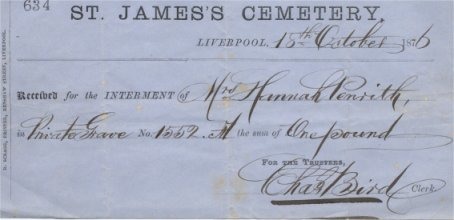 634
ST. JAMES'S CEMETERY,
LIVERPOOL, 18th October 1876
Received for the INTERMENT of Mrs Hannah Penrith,
in Private Grave No. 1552. A the sum of One pound
FOR THE TRUSTEES,
Chas Bird Clerk.